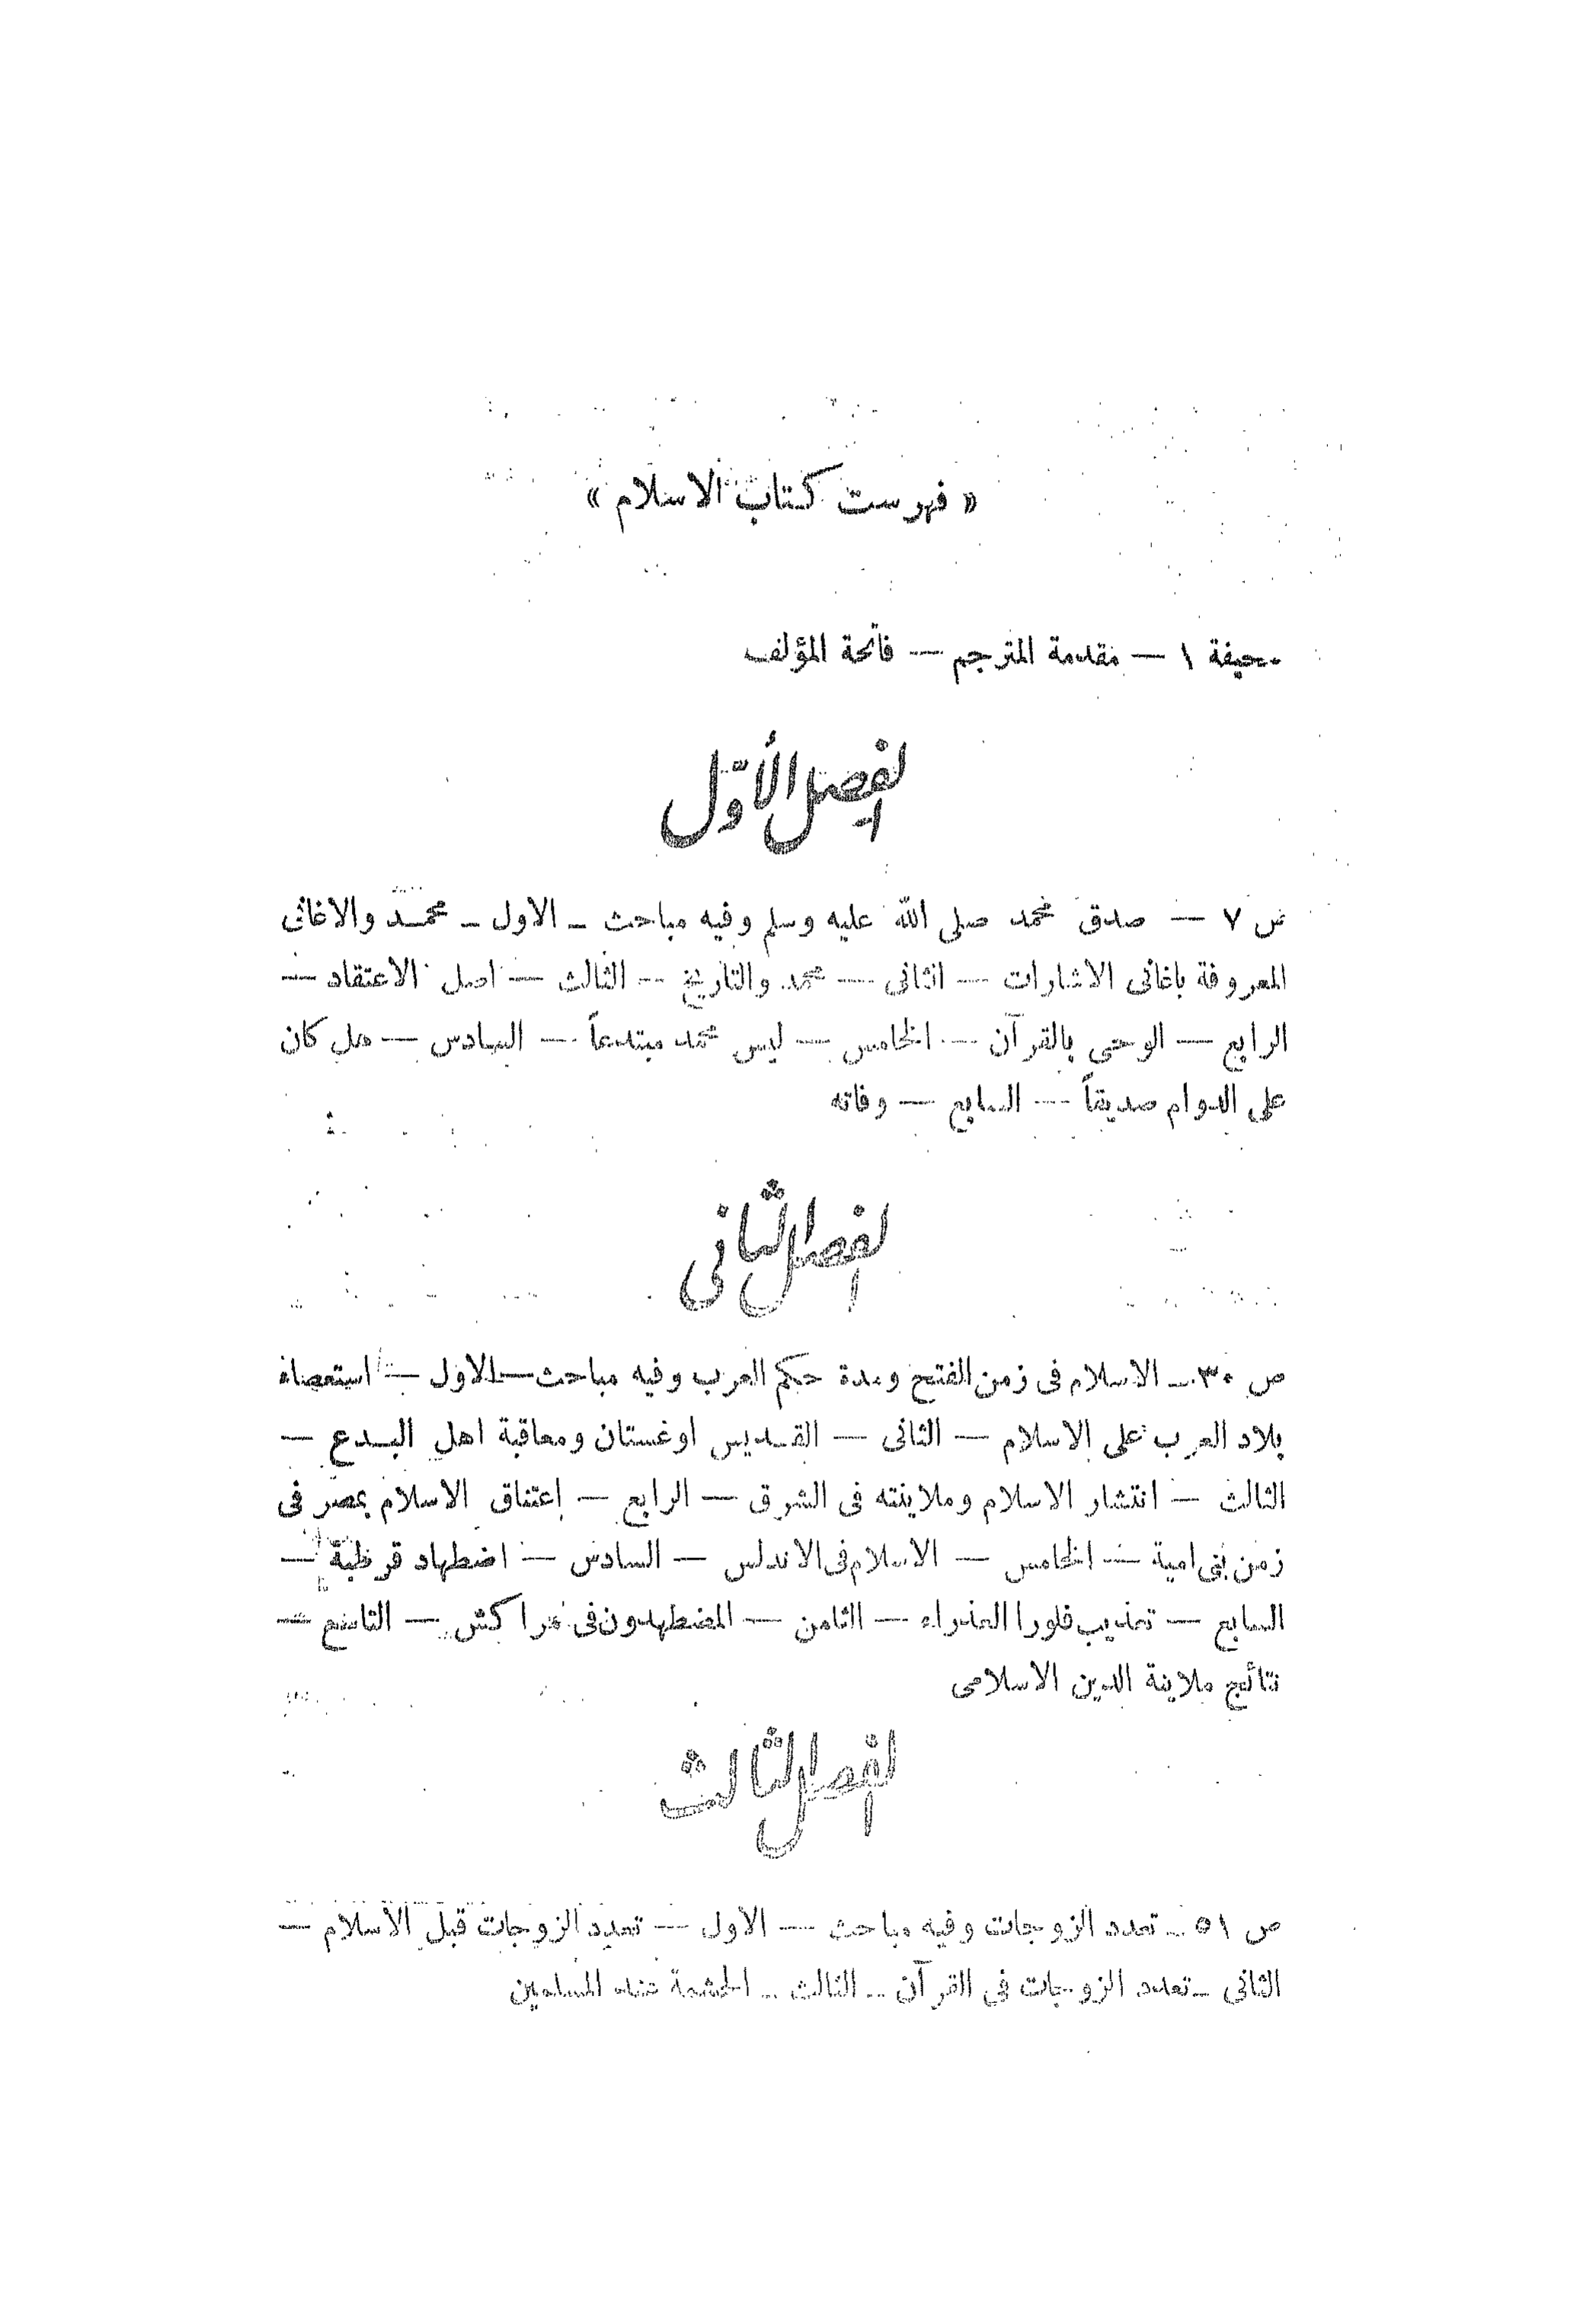 « فهرست كتاب الاسلام »
صحيفة ١ — مقدمة المترجم — فاتحة المؤلف
الفصل الأوّل
ص ٧ — صدق محمد صلى الله عليه وسلم وفيه مباحث - الاول - محمد والاغانى
المعروفة باغانى الاشارات — الثانى — محمد والتاريخ — الثالث — اصل الاعتقاد —
الرابع — الوحى بالقرآن — الخامس — ليس محمد مبتدعاً — السادس — هل كان
على الدوام صديقاً — السابع — وفاته
الفصل الثانى
ص ٣٠ - الاسلام فى زمن الفتح ومدة حكم العرب وفيه مباحث — الاول — استعصاء
بلاد العرب على الاسلام — الثانى — القديس اوغستان ومعاقبة اهل البدع —
الثالث — انتشار الاسلام وملاينته فى الشرق — الرابع — إعتناق الاسلام بمصر فى
زمن بنى امية — الخامس — الاسلام فى الاندلس — السادس — اضطهاد قرطبة —
السابع — تعذيب فلورا العذراء — الثامن — المضطهدون فى مراكش — التاسع —
نتائج ملاينة الدين الاسلامى
الفصل الثالث
ص ٥١ - تعدد الزوجات وفيه مباحث — الاول — تعدد الزوجات قبل الاسلام —
الثانى - تعدد الزوجات فى القرآن - الثالث - الحشمة عند المسلمين